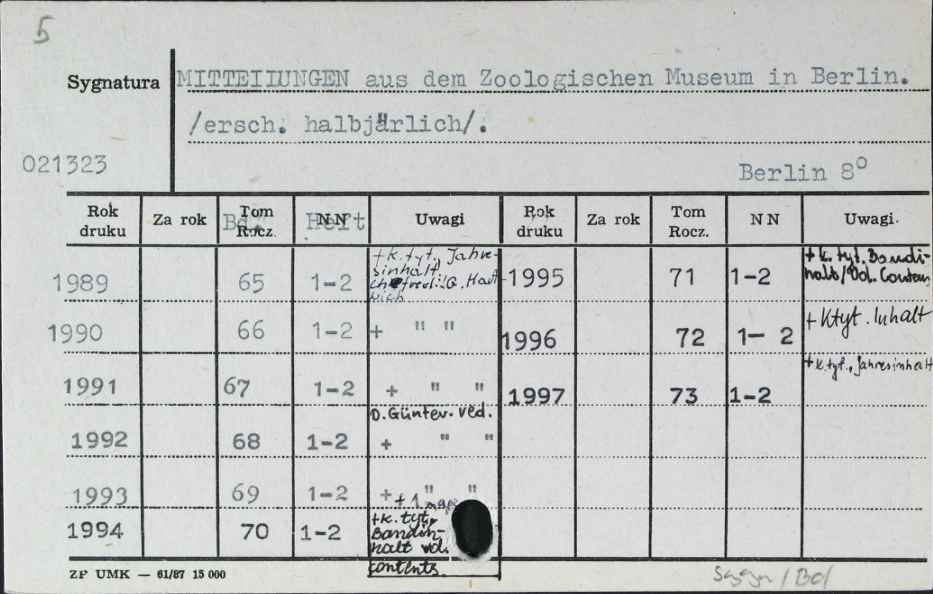 5
Sygnatura MITTEIIUNGEN aus dem Zoologischen Museum in Berlin.
/ersch. halbjärlich/.
021323
Berlin 8°
Rok druku Za rok Tom Rocz. Bd. NN Heft Uwagi Rok druku Za rok Tom Rocz. NN Uwagi
1989 65 1-2 +k. tyt., Jahresinhalt, 1995 71 1-2 +k. tyt. Bandinhalt/Vol. Conten,
1990 66 1-2 + " " 1996 72 1- 2 + Ktyt. Inhalt
1991 67 1-2 + " " 1997 73 1-2 +k.tyt., Jahresinhalt
D. Günter. red.
1992 68 1-2 + " "
1993 69 1-2 + " "
+ 1
1994 70 1-2 +k. tyt, Bandin-
halt vol.
contents.
ZF UMK — 61/87 15 000